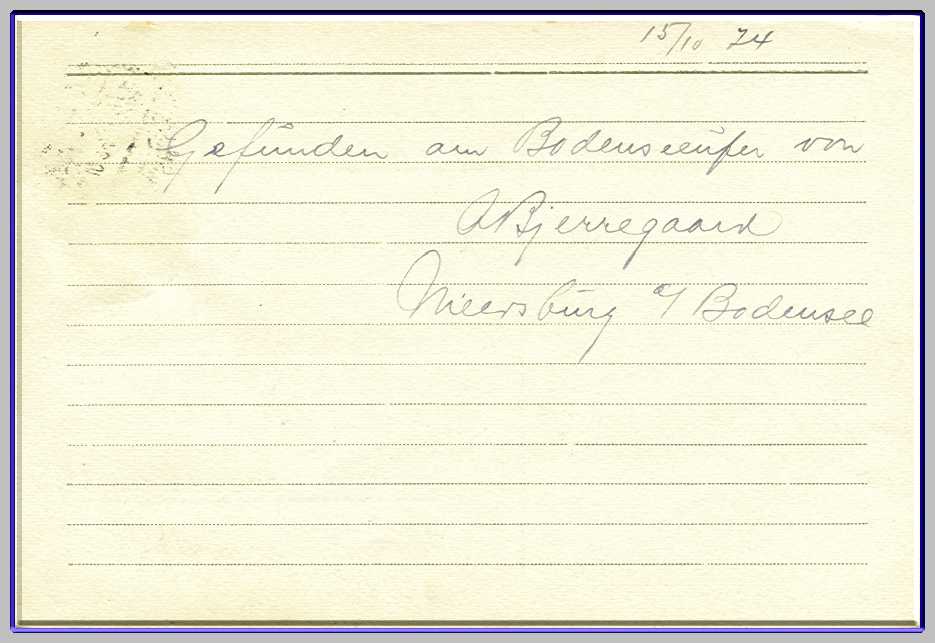 15/10 74
Gefunden am Bodenseeufer von
A Bjerregaard
Meersburg a/ Bodensee